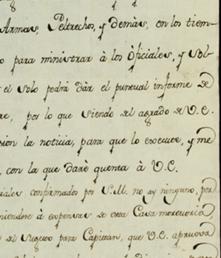 Armas, Peltrechos, y demàs, en los tiem-
o para ministrar à los Oficiales, y Sol-
e el solo podrà dàr el puntual informe de
re, por lo que siendo del agrado de V.E.
cion la noticia, para que lo execute, y me
, con la que darè quenta à V.E.
iales confirmados por S.M. no ay ninguno, por
niendose à expensas de esta Casa
el Sugeto para Capitan, que V.E. aprueva